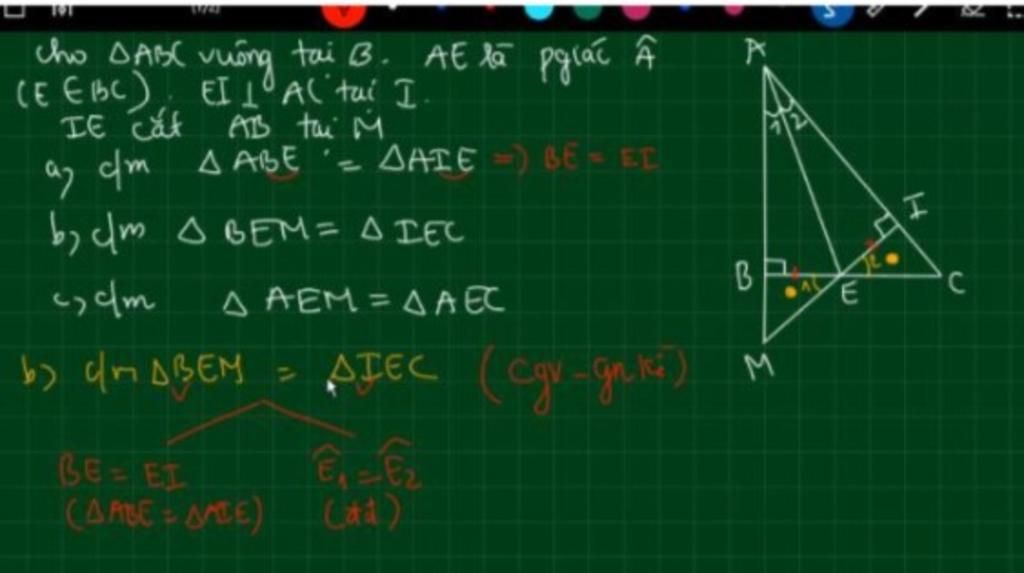 cho △ABC vuông tại B. AE là pgiác Â
(E ∈ BC). EI ⊥ AC tại I.
IE cắt AB tại M
a, c/m △ABE = △AIE => BE = EI
b, c/m △BEM = △IEC
c, c/m △AEM = △AEC
b) c/m △BEM = △IEC (cgv - gn kề)
BE = EI Ê₁ = Ê₂
(△ABE = △AIE) (đđ)
A
1 2
I
B 1 2 C
E
M